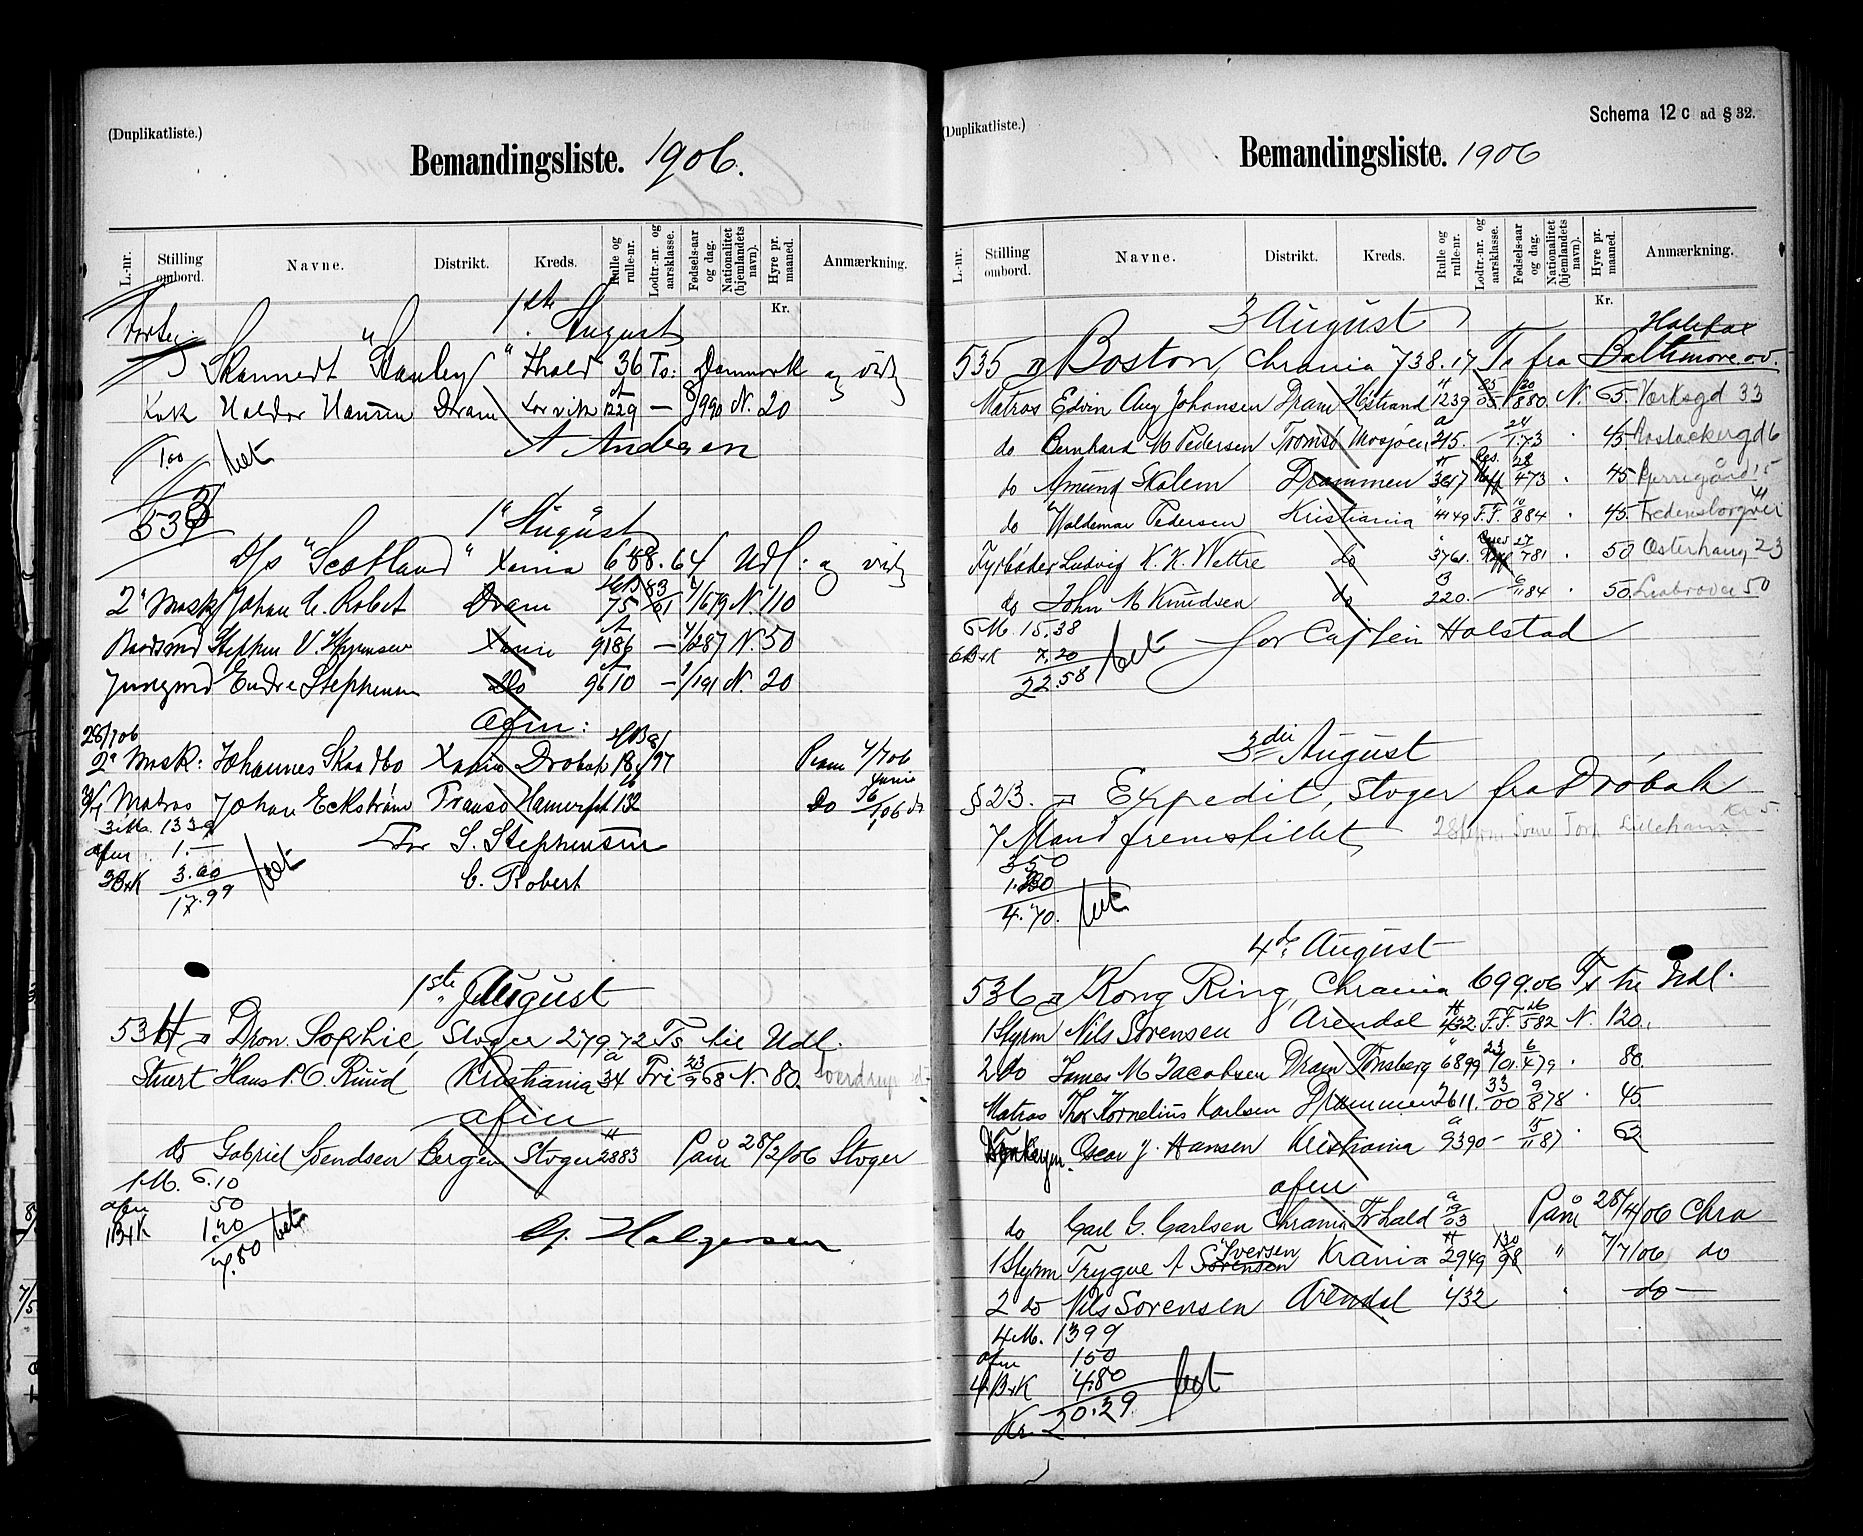 (Duplikatliste.)
Bemandingsliste. 1906.
L.-nr.
Stilling ombord.
Navne.
Distrikt.
Kreds.
Rulle og rulle-nr.
Lodtr.-nr. og aarsklasse.
Fødsels-aar og dag.
Nationalitet (hjemlandets navn).
Hyre pr. maaned.
Anmærkning.
Kr.
1ste August
Skonnert "Stanley" Fhald 36 Ts. Danmark og vid
Kok Haldor Hansen Dram Larvik 1229 — N. 20
1.00 bet A Andersen
533
1ste August
D/s "Scotland" Xania 688.64 Udl: og vid
2 Mask Johan C. Robert Dram 75 N. 110
Baadsmd Steffen V. Stephensen Xania 9186 — N. 50
Jungmd Endre Stephensen Do 9610 — N. 20
Afm:
28/7 06
2 Mask: Johannes Skaadbo Xania Drobak 18 97 Paam 4/7 06 Xania
Matros Johan Eckstrøm Tromsø Hamerfest 132 Do 06 do
3 Ma. 13 39
afm 1.—
3B+K 3.60
17.99 bet
For S. Stephensen
C. Robert
1ste August
534 Dron. Sophie, Stvger 279,72 Ts til Udl.
Stuert Hans P. O. Ruud Kristiania 34 Fri 23/9 68 N. 80.
afm
do Gabriel Svendsen Bergen Stvger 2883 Paam 28/2/06 Stvger
1 M. 6.10
afm 50
1B+K 1.20
7.80 bet
G. Halvorsen
(Duplikatliste.)
Schema 12 c ad § 32.
Bemandingsliste. 1906
L.-nr.
Stilling ombord.
Navne.
Distrikt.
Kreds.
Rulle og rulle-nr.
Lodtr.-nr. og aarsklasse.
Fødsels-aar og dag.
Nationalitet (hjemlandets navn).
Hyre pr. maaned.
Anmærkning.
Kr.
3 August
Halifax
535 Boston, Chrania 738.17 Ts fra Baltimore ov.
Matros Edvin Aug Johansen Dram Hstrand 1239 20/1 880 N. 65. Verksgd 33
do Bernhard M Pedersen Tromsø Mosjøen 215. 1.73 45
do Amund Skalem Drammen 3617 28/4 73 45
do Waldemar Pedersen Kristiania 4149 F.F. 10/8 84 45. Fredensborgvei
Fyrbøder Ludvig K. K. Wettre do 3761. 27/7 81 50 Osterhaug 23
do John M Knudsen do 220. 6/11 84 50.
6 M. 15.38
6B+K 7.20
22.58 bet
for Captein Halstad
3die August
§ 23. Expedit, Stvger fra Drøbak
7 Mand fremstillet
350
1.20
4.70. bet
4de August
536 Kong Ring, Chrania 699.06 Ts til Udl.
1 Styrm Nils Sørensen Arendal 432 F.F. 16/5 82 N. 120.
2 do James M Jacobsen Dram Tønsberg 6899 23/01 6/4 79 80.
Matros Thor Kornelius Karlsen Drammen 2611. 33/00 9/8 78 45.
Oscar J. Hansen Kristiania 9390 — 15/11 87 62
afm
do Carl G. Carlsen Chrania Fr hald 19/03 Paam 28/4/06 Chra
1 Styrm Trygve A Sørensen Iversen Krania 2949 130/98 " 7/7/06 do
2 do Nils Sørensen Arendal 432 do
4 M. 13 99
afm 1.50
4 B+K 4.80
Kr. 20.29 bet